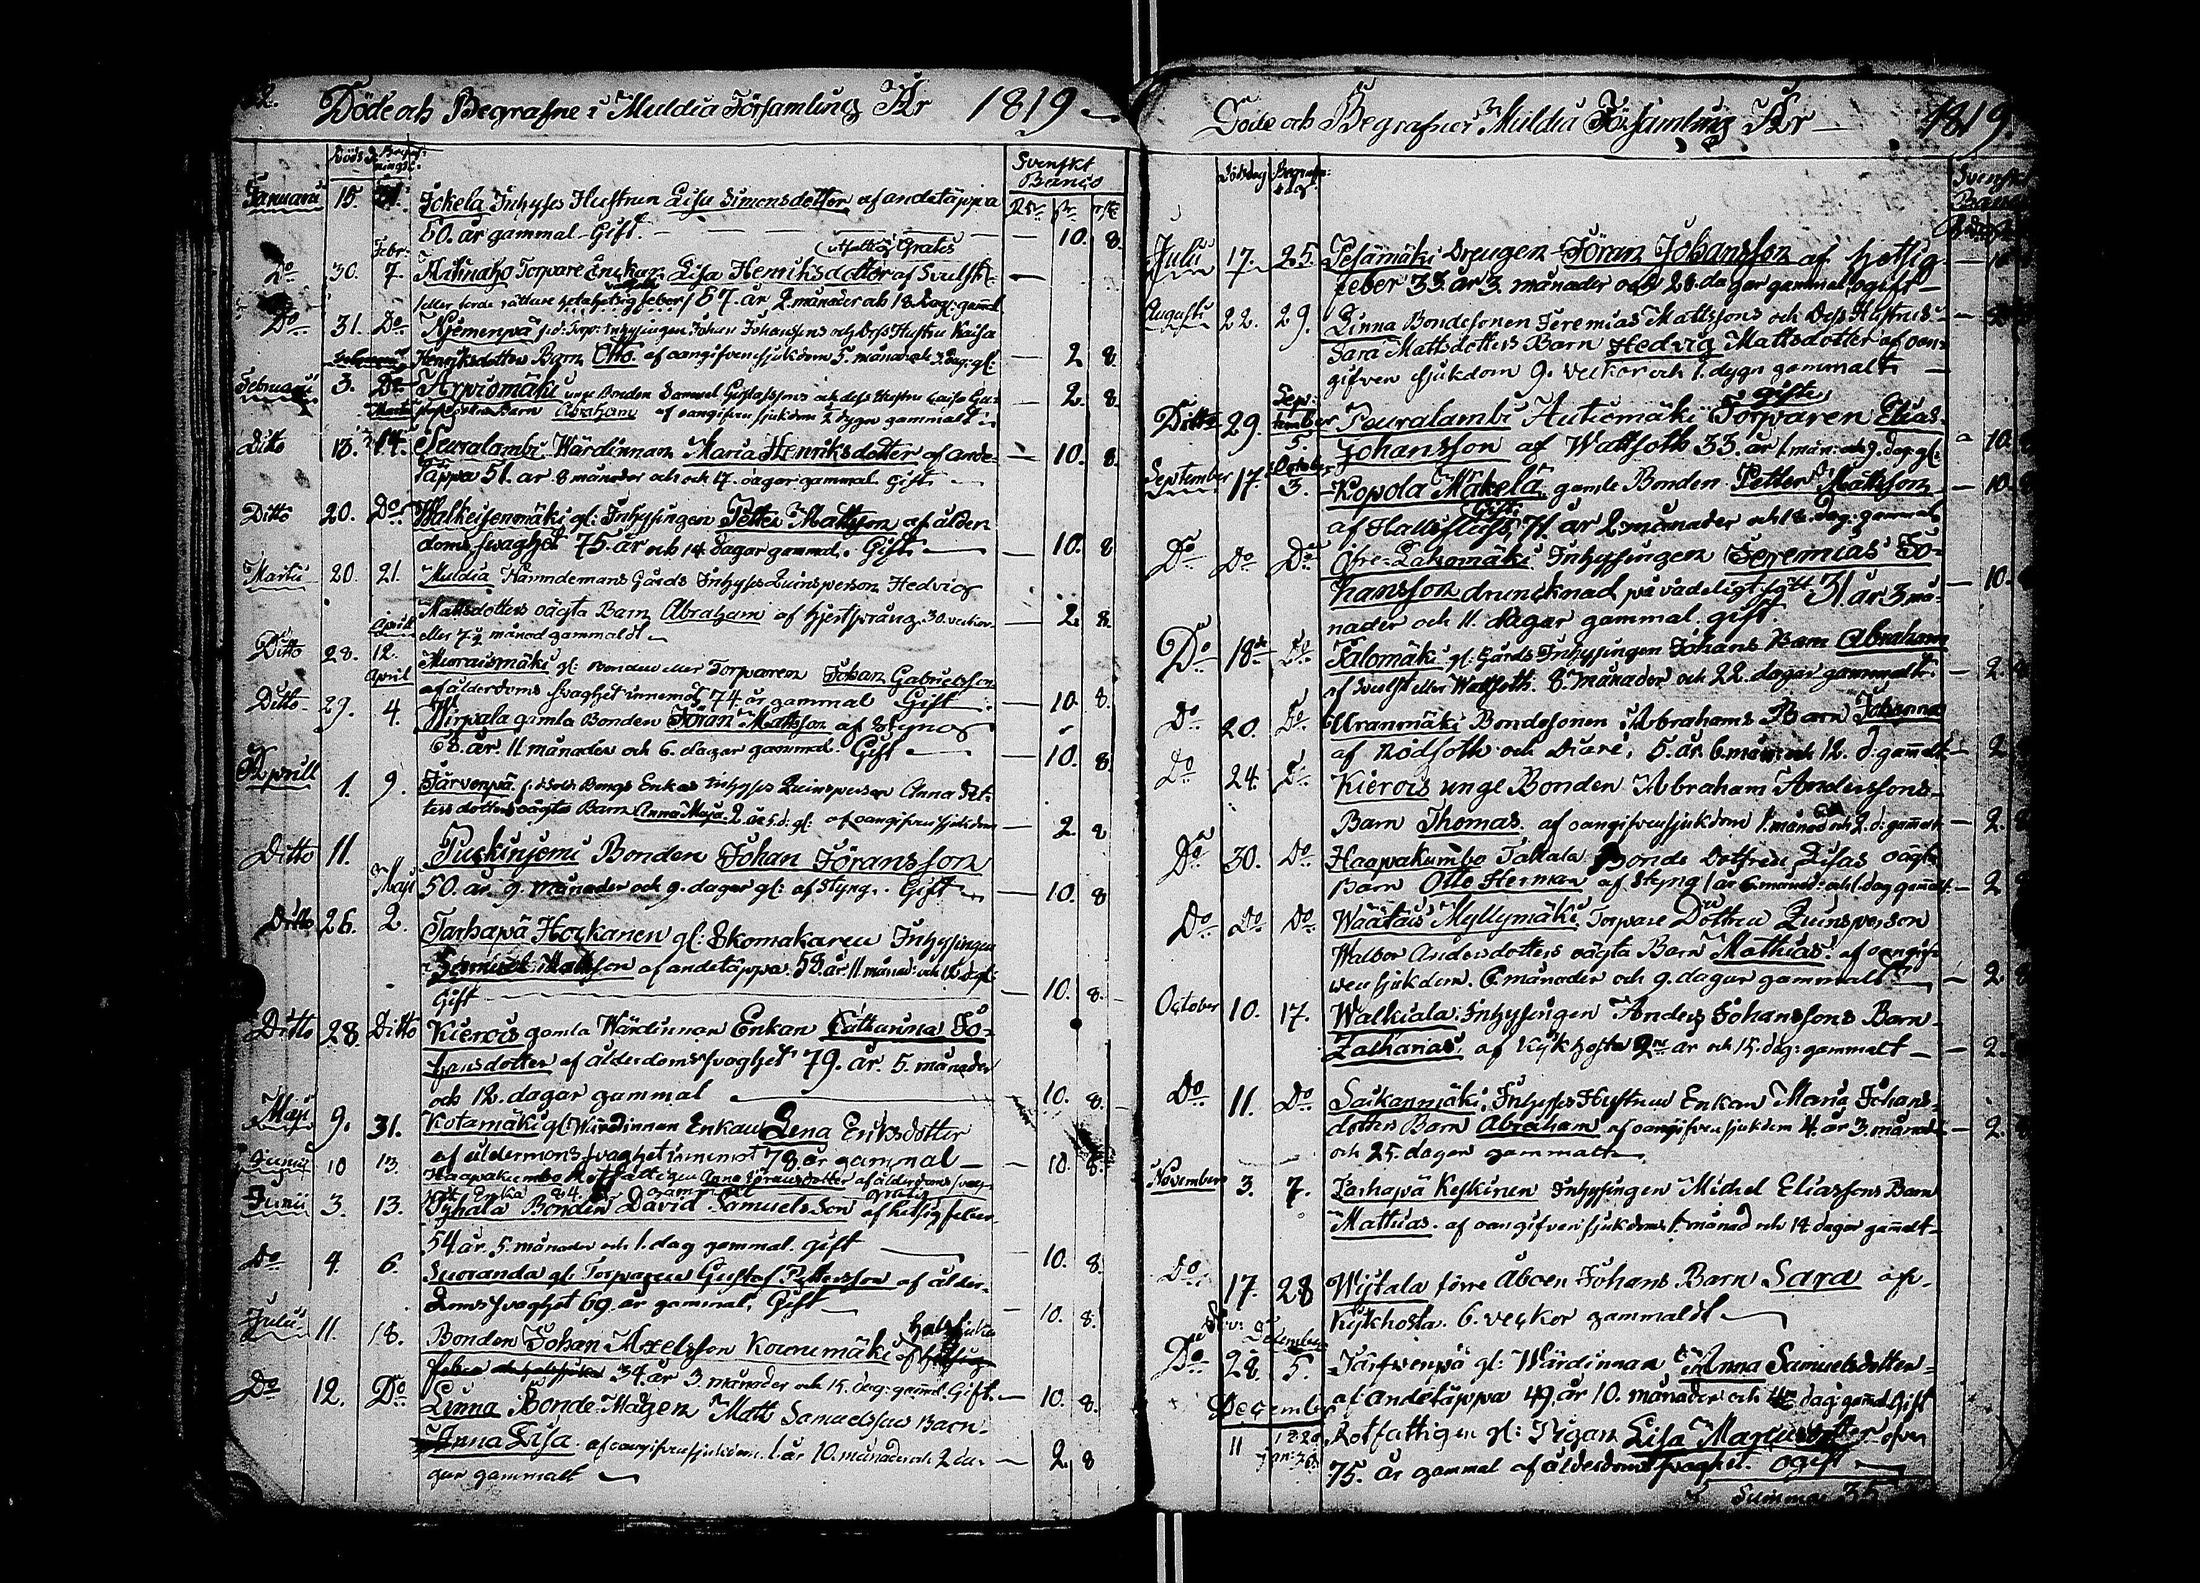 Döde och Begrafne i Muldia Församling År 1819
Svenskt
Banco
Januarii 15. 31. Jokela Inhyses Hustrun Lisa Simonsdotter af andetäppa
50. år gammal Gift. 10. 8.
Febr:
Gratis
Do 30. 7. Torpare Enkan Lisa Henriksdotter af
57. år 2. månader och 18. dag: gamal
Do 31. Do Niemenpä Inhysingen Johan Johanssons och Dess Hustru Kaisa
Henriksdotters Barn Otto af oangifven sjukdom 5. månader 2. 8.
Februarii 3. Do unge Bonden Samuel Gustafssons och dess Hustru Caisa
Barn Abraham af oangifven sjukdom 2 dygn gammalt 2. 8.
Ditto 13. 14. Peuralambi Wärdinnan Maria Henriksdotter af ande-
täppa 51. år 8 månader och 17. dagar gammal Gift 10. 8.
Ditto 20. Do Walkeisenmäki gl: Inhysingen Petter Mattsson af ålder
doms svaghet 75. år och 14 dagar gammal. Gift. 10. 8
Martii 20. 21. Muldia Nämndemans Gårds Inhyses Quinsperson Hedvig
Mattsdotters oägta Barn Abraham af hjertsprång 30. veckor
eller 7½ månad gammaldt 2. 8.
April
Ditto 28. 12. gl: Bonden eller Torparen Johan Gabrielsson
af ålderdoms svaghet innemot 74. år gammal Gift 10. 8.
April
Ditto 29. 4. Wirpala gamla Bonden Jöran Mattsson af Styng
68. år. 11 månader och 6. dagar gammal. Gift 10. 8.
Aprill 1. 9. Järvenpä Enkas Inhyses Quinsperson Anna
dotters oägta Barn Anna Maja 2. år 5. d. gl: af oangifven sjukdom 2. 8
Ditto 11. Puckinjemi Bonden Johan Jöransson
Maji
50. år. 9. månader och 9. dagar gl: af Styng. Gift 10. 8
Ditto 26. 2. Tarhapä Hockanen gl: Skomakaren Inhysingen
Samuel Mattsson af andetäppa. 58. år. 11 månad: och
Gift 10. 8.
Ditto 28. Ditto Kierois gamla Wärdinnan Enkan Catharina Jo-
hansdotter af ålderdoms svaghet 79. år. 5. månader
och 12. dagar gammal 10. 8.
Maji 9. 31. Kotamäki gl: Wärdinnan Enkan Lena Eriksdotter
af åldermons svaghet innemot 78 år gammal 10. 8.
Junii 10 13. Haapakumbo Rotfattigen Anna Göransdotter af ålderdoms svag-
het Enka 84. år gammal gratis
Junii 3. 13. Pyhala Bonden David Samuelsson af hetsig feber
54 år. 5. månader och 1. dag gammal. Gift 10. 8.
Do 4. 6. Suoranda gl: Torparen Gustaf Pettersson af ålder-
doms svaghet 69. år gammal, Gift 10. 8.
Julii 11. 18. Bonden Johan Axelsson Kourumäki af
34. år 3. månader och 15. dag: gamal. Gift. 10. 8.
Do 12. Do Linna Bonde Mågen Matts Samuelssons Barn
Anna Lisa. af oangifven sjukdom. 1. år 10. månader och 2 da-
gar gammalt 2. 8
Döde och Begrafne i Muldia Församling År 1819.
Dödsdag Begrafn: dag
Svenskt
Banco
Julii 17. 25. Pesämäki Drengen Jöran Johansson af hetsig
feber 33. år 3. månader och 28. dagar gammal ogift
Augusti 22. 29. Linna Bondesonen Jeremias Mattssons och Dess Hustrus
Sara Mattsdotters Barn Hedvig Mattsdotter af oan-
gifven sjukdom 9. veckor och 1. dygn gammalt
gifte
Ditto 29. September 5 Peuralambi Autiomäki Torparen Elias
Johansson af Wattsoth 33. år 1. mån: och 9. dag: gl: 10.
September 17. October 3. Kopola Mäkelä gamle Bonden Petter Mattsson 10.
Gift:
af Halssjuka, 71. år 2. månader och 18. dag: gammal
Do Do Do Öfre Lahomäki Inhysingen Jeremias Jo-
hansson drunknad på vådeligt sätt 31. år 3. må- 10.
nader och 11. dagar gammal. gift.
Do 18de Do Talomäki gl: Gårds Inhysingen Johans Barn Abraham
af Svulst eller Wattsoth. 8. månader och 22. dagar gammalt. 2.
Do 20. Do Uranmäki Bondesonen Abrahams Barn Johannes
af Rödsoth och Diare, 5. år. 6. mån: och 12. d. gamalt 2.
Do 24. Do Kierois unge Bonden Abraham Anderssons
Barn Thomas. af oangifven sjukdom 1. månad och 2. d: gamalt 2.
Do 30. Do Haapakumbo Takala Bonde Dottren Lisas oägta
Barn Otto Herman af Styng 1 år 6. månad: och 1. dag gamalt 2.
Do Do Do Wäätäis Myllymäki Torpare Dottren Quinsperson
Walbor Andersdotters oägta Barn Mathias. af oangif-
ven sjukdom. 6. månader och 9. dagar gammalt 2. 8
October 10. 17. Walkiala Inhysingen Anders Johanssons Barn
Zacharias. af Kikhosta 2ne år och 15. dag: gammalt 2.
Do 11. Do Saikanmäki, Inhyses Hustrun Enkan Maria Johans-
dotters Barn Abraham af oangifven sjukdom 4. år 3. månader 2.
och 25. dagar gammalt
November 3. 7. Tarhapä Keskinen Inhysingen Michel Eliassons Barn
Mattias. af oangifven sjukdom 1. månad och 14 dagar gamalt
Do 17. 28 Wijtala förre Åboen Johans Barn Sara af
Kykhosta. 6. veckor gammaldt
Do 28. December 5. Järfvenpä gl: Wärdinnan Anna Samuelsdotter
af andetäppa 49. år 10. månader och dag: gamal Gift
December 11 Rotfattigen gl: Pigan Lisa Marcusdotter öfver
75. år gammal af ålderdoms svaghet. ogift
Summa 35